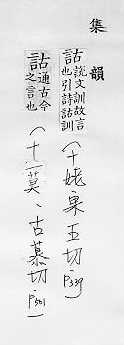 集韻
詁說文訓故言也引詩詁訓(十姥·果五切·P339)
詁通古今之言也(十一莫、古慕切·P501)